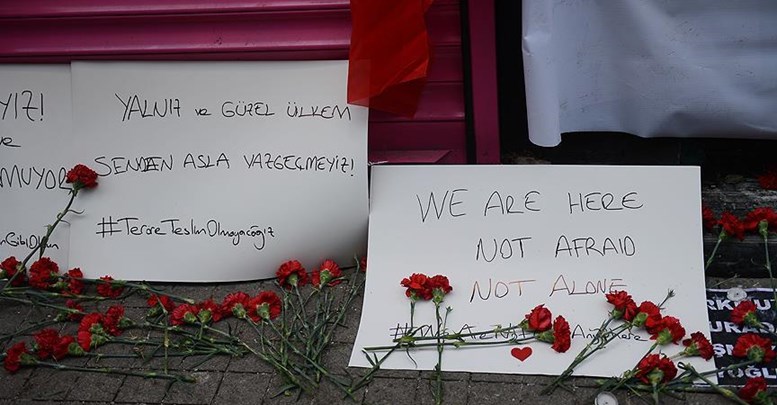 YİZ!
VE
MUYOR
YALNIZ ve GÜZEL ÜLKEM
SENDEN ASLA VAZGEÇMEYİZ!
#TeröreTeslimOlmayacağız
WE ARE HERE
NOT AFRAID
NOT ALONE